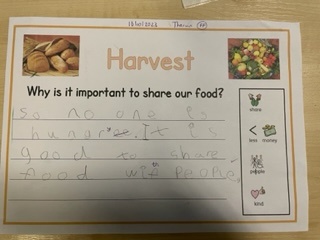 Harvest
Why is it important to share our food?
so no one is
It is
good to share
food with people
share
< less money
people
kind